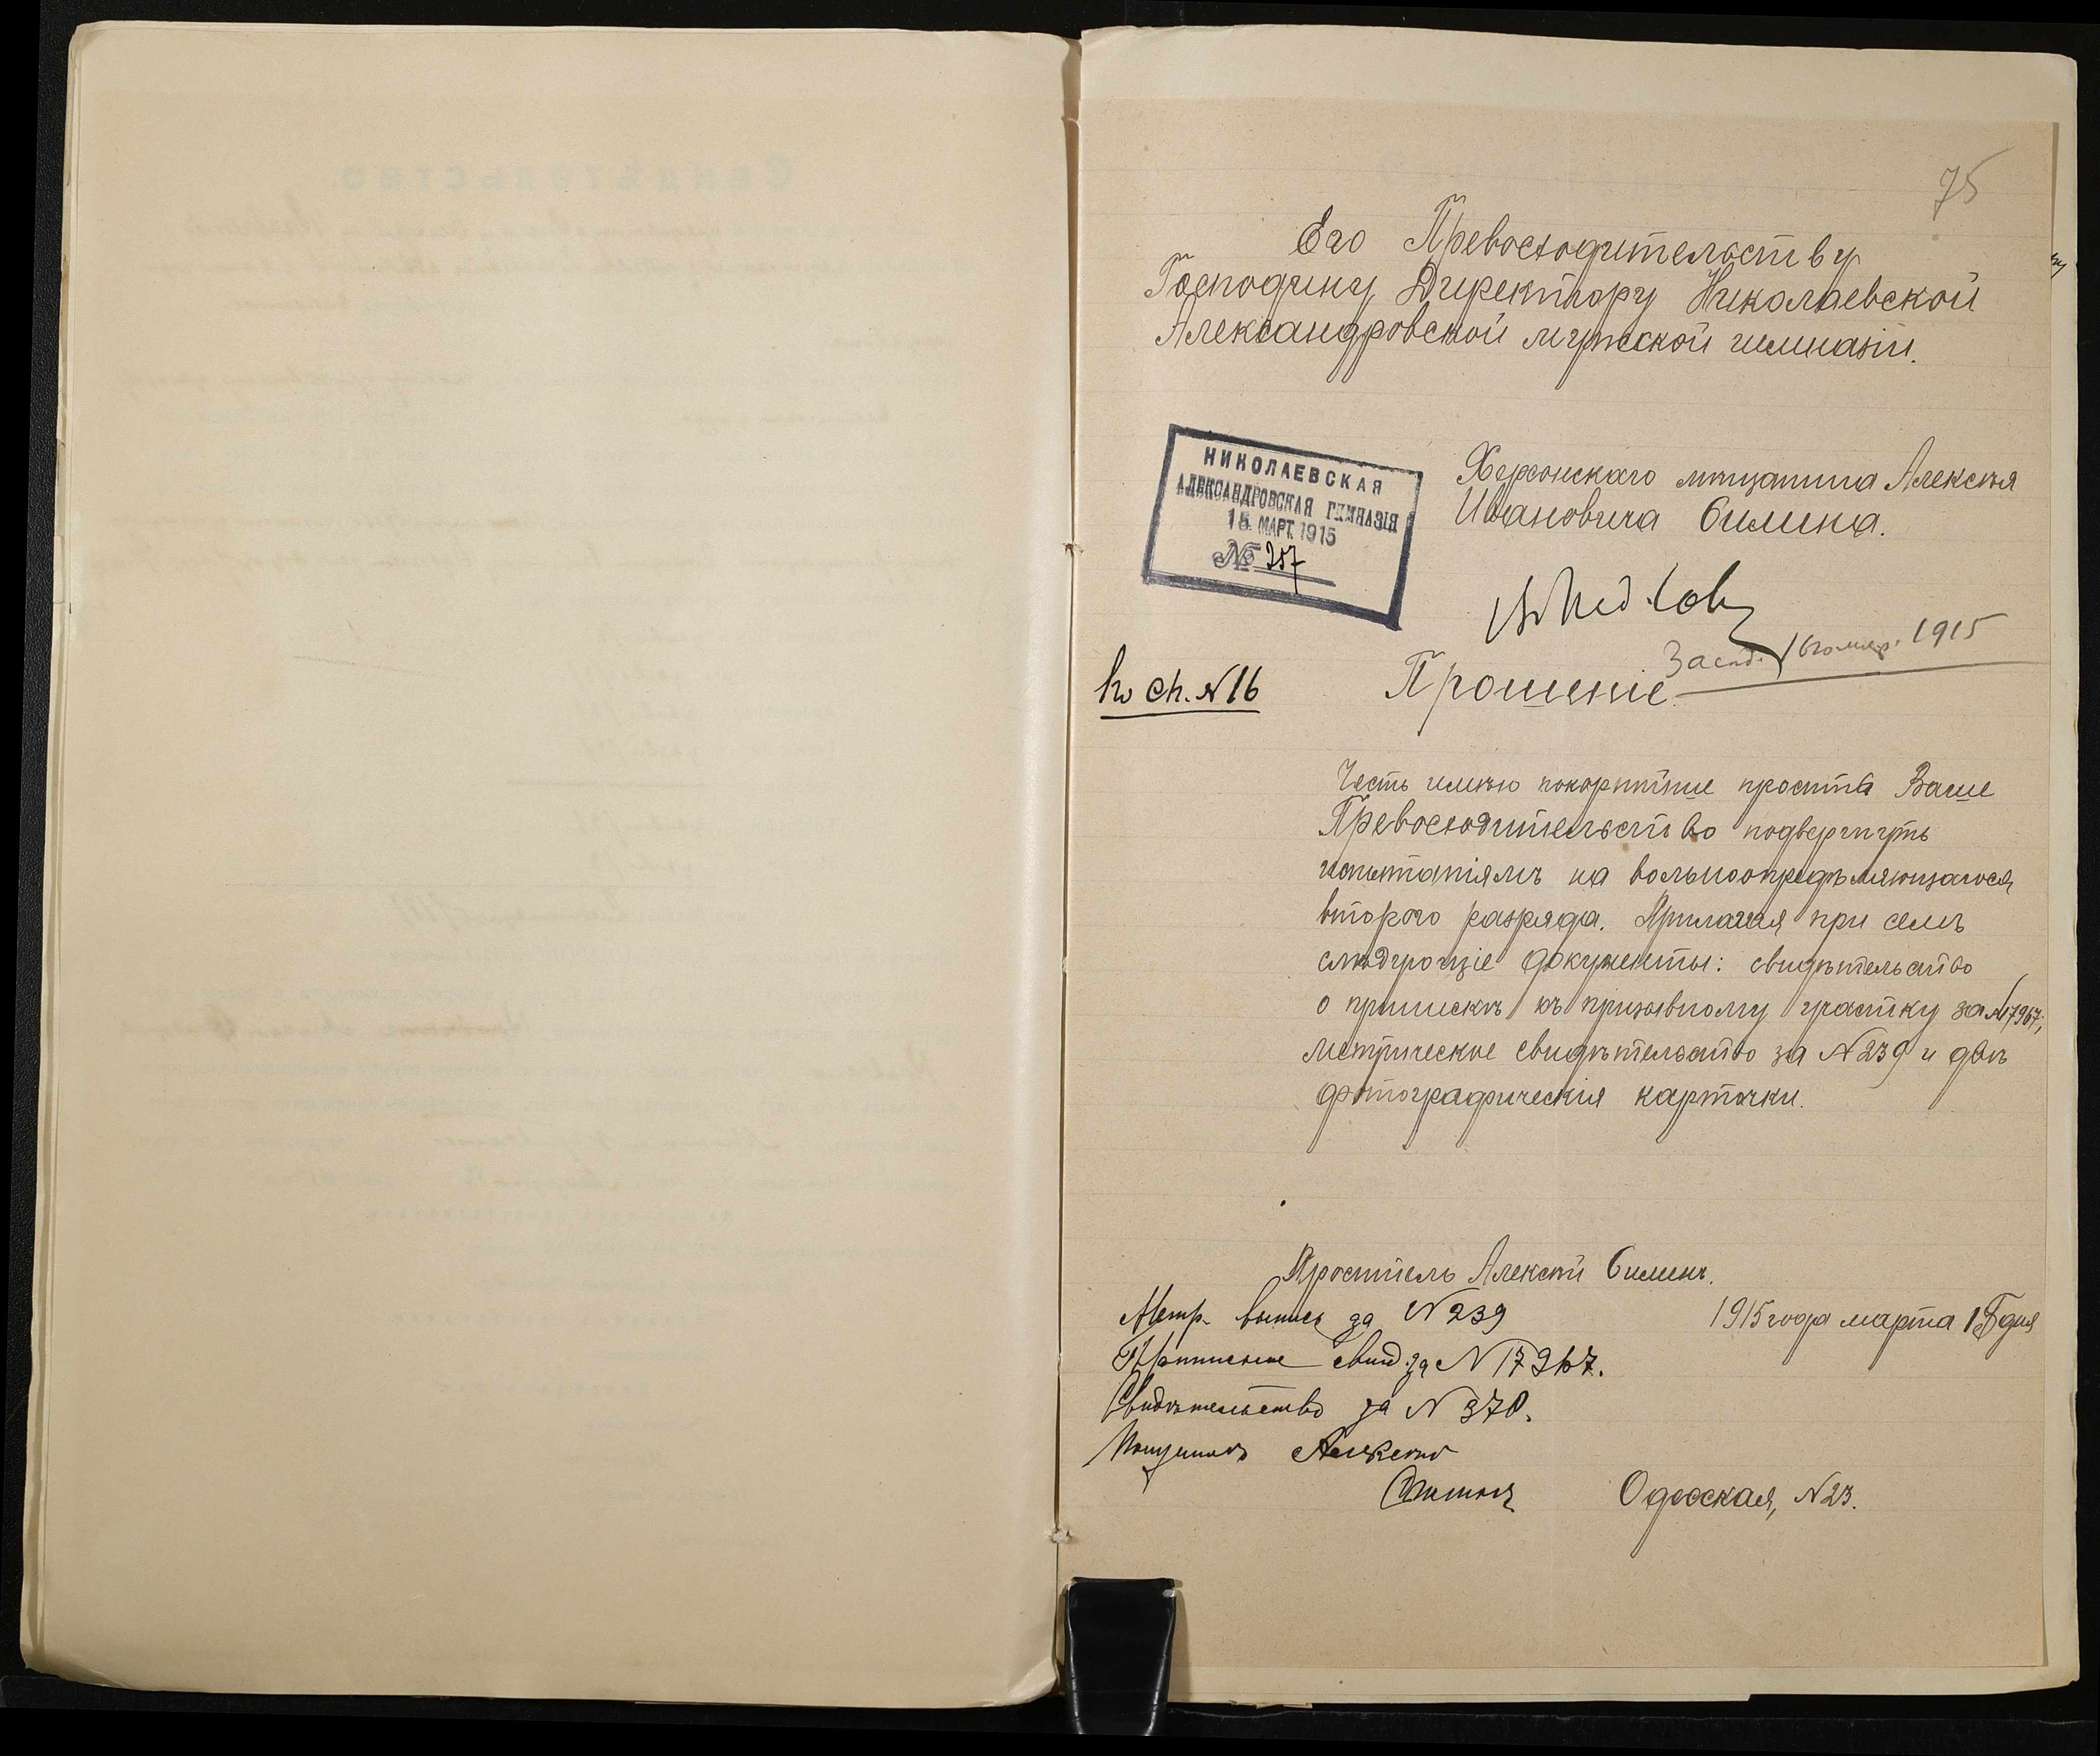 75
Его Превосходительству
Господину Директору Николаевской
Александровской мужской гимназіи.
НИКОЛАЕВСКАЯ
АЛЕКСАНДРОВСКАЯ ГИМНАЗІЯ
15. МАРТ. 1915
№ 257
Херсонскаго мѣщанина Алексѣя
Ивановича Силина.
Засѣд. 16го мар. 1915
Прошеніе.
Честь имѣю покорнѣйше просить Ваше
Превосходительство подвергнуть
испытаніямъ на вольноопредѣляющагося
второго разряда. Прилагая при семъ
слѣдующіе документы: свидѣтельство
о припискѣ къ призывному участку за №17967;
метрическое свидѣтельство за №239 и двѣ
фотографическія карточки.
Проситель Алексѣй Силинъ.
1915 года марта 15 дня
Метр. выпись за №239
Приписное свид. за №17967.
Свидѣтельство за №370.
Получилъ Алексѣй
Силинъ
Одесская, №23.